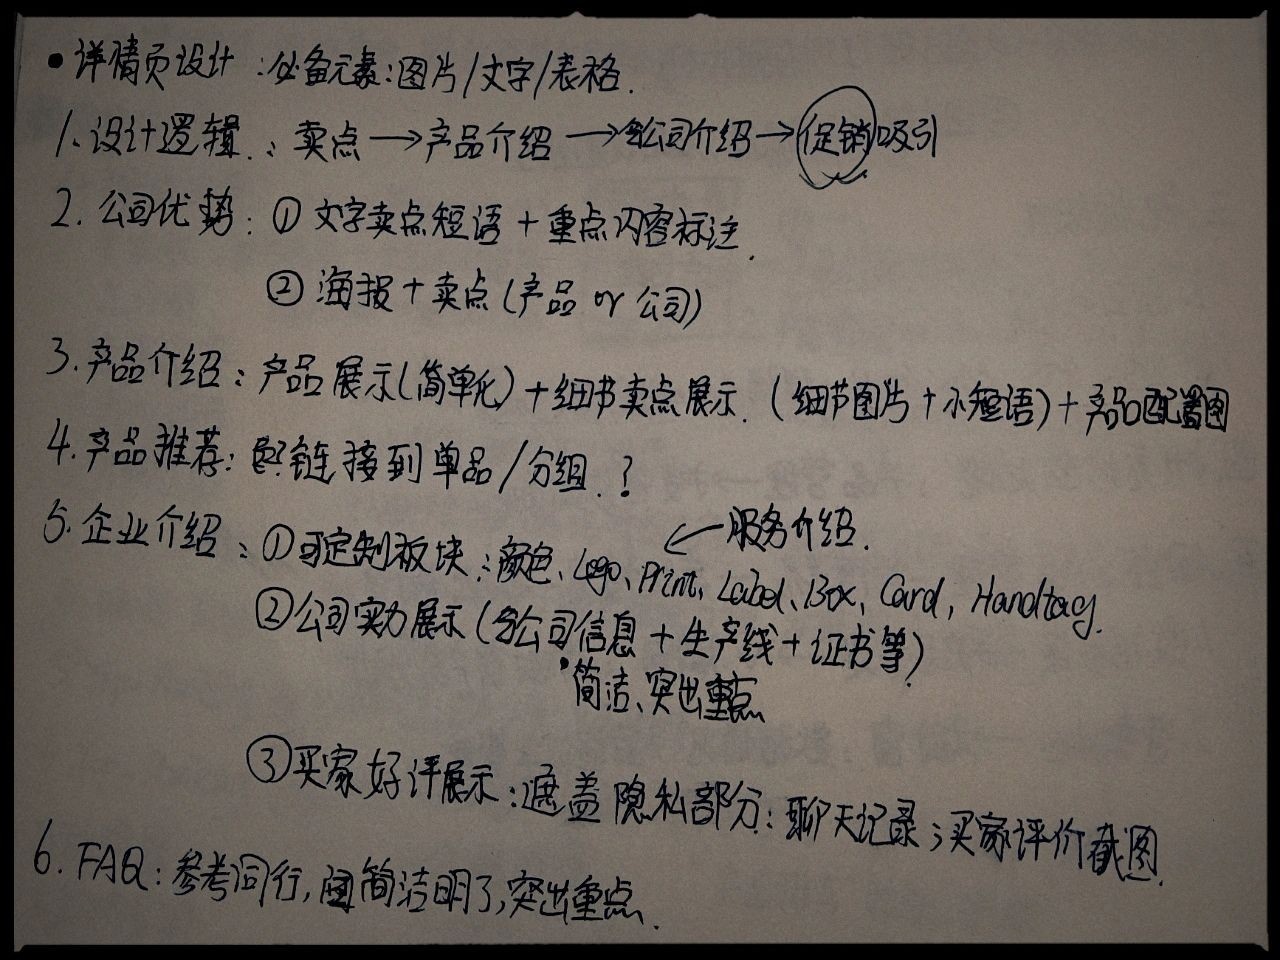 • 详情页设计：必备元素：图片/文字/表格.
1. 设计逻辑：卖点→产品介绍→公司介绍→促销吸引
2. 公司优势：① 文字卖点短语+重点内容标注.
② 海报+卖点(产品 or 公司)
3. 产品介绍：产品展示(简单化)+细节卖点展示.(细节图片+小短语)+产品配置图
4. 产品推荐：链接到单品/分组.？
←服务介绍.
5. 企业介绍：①可定制板块：颜色、Logo、Print、Label、Box, Card, Handtag.
②公司实力展示(公司信息+生产线+证书等)
•简洁、突出重点
③买家好评展示：遮盖隐私部分：聊天记录；买家评价截图.
6. FAQ：参考同行,简洁明了,突出重点.